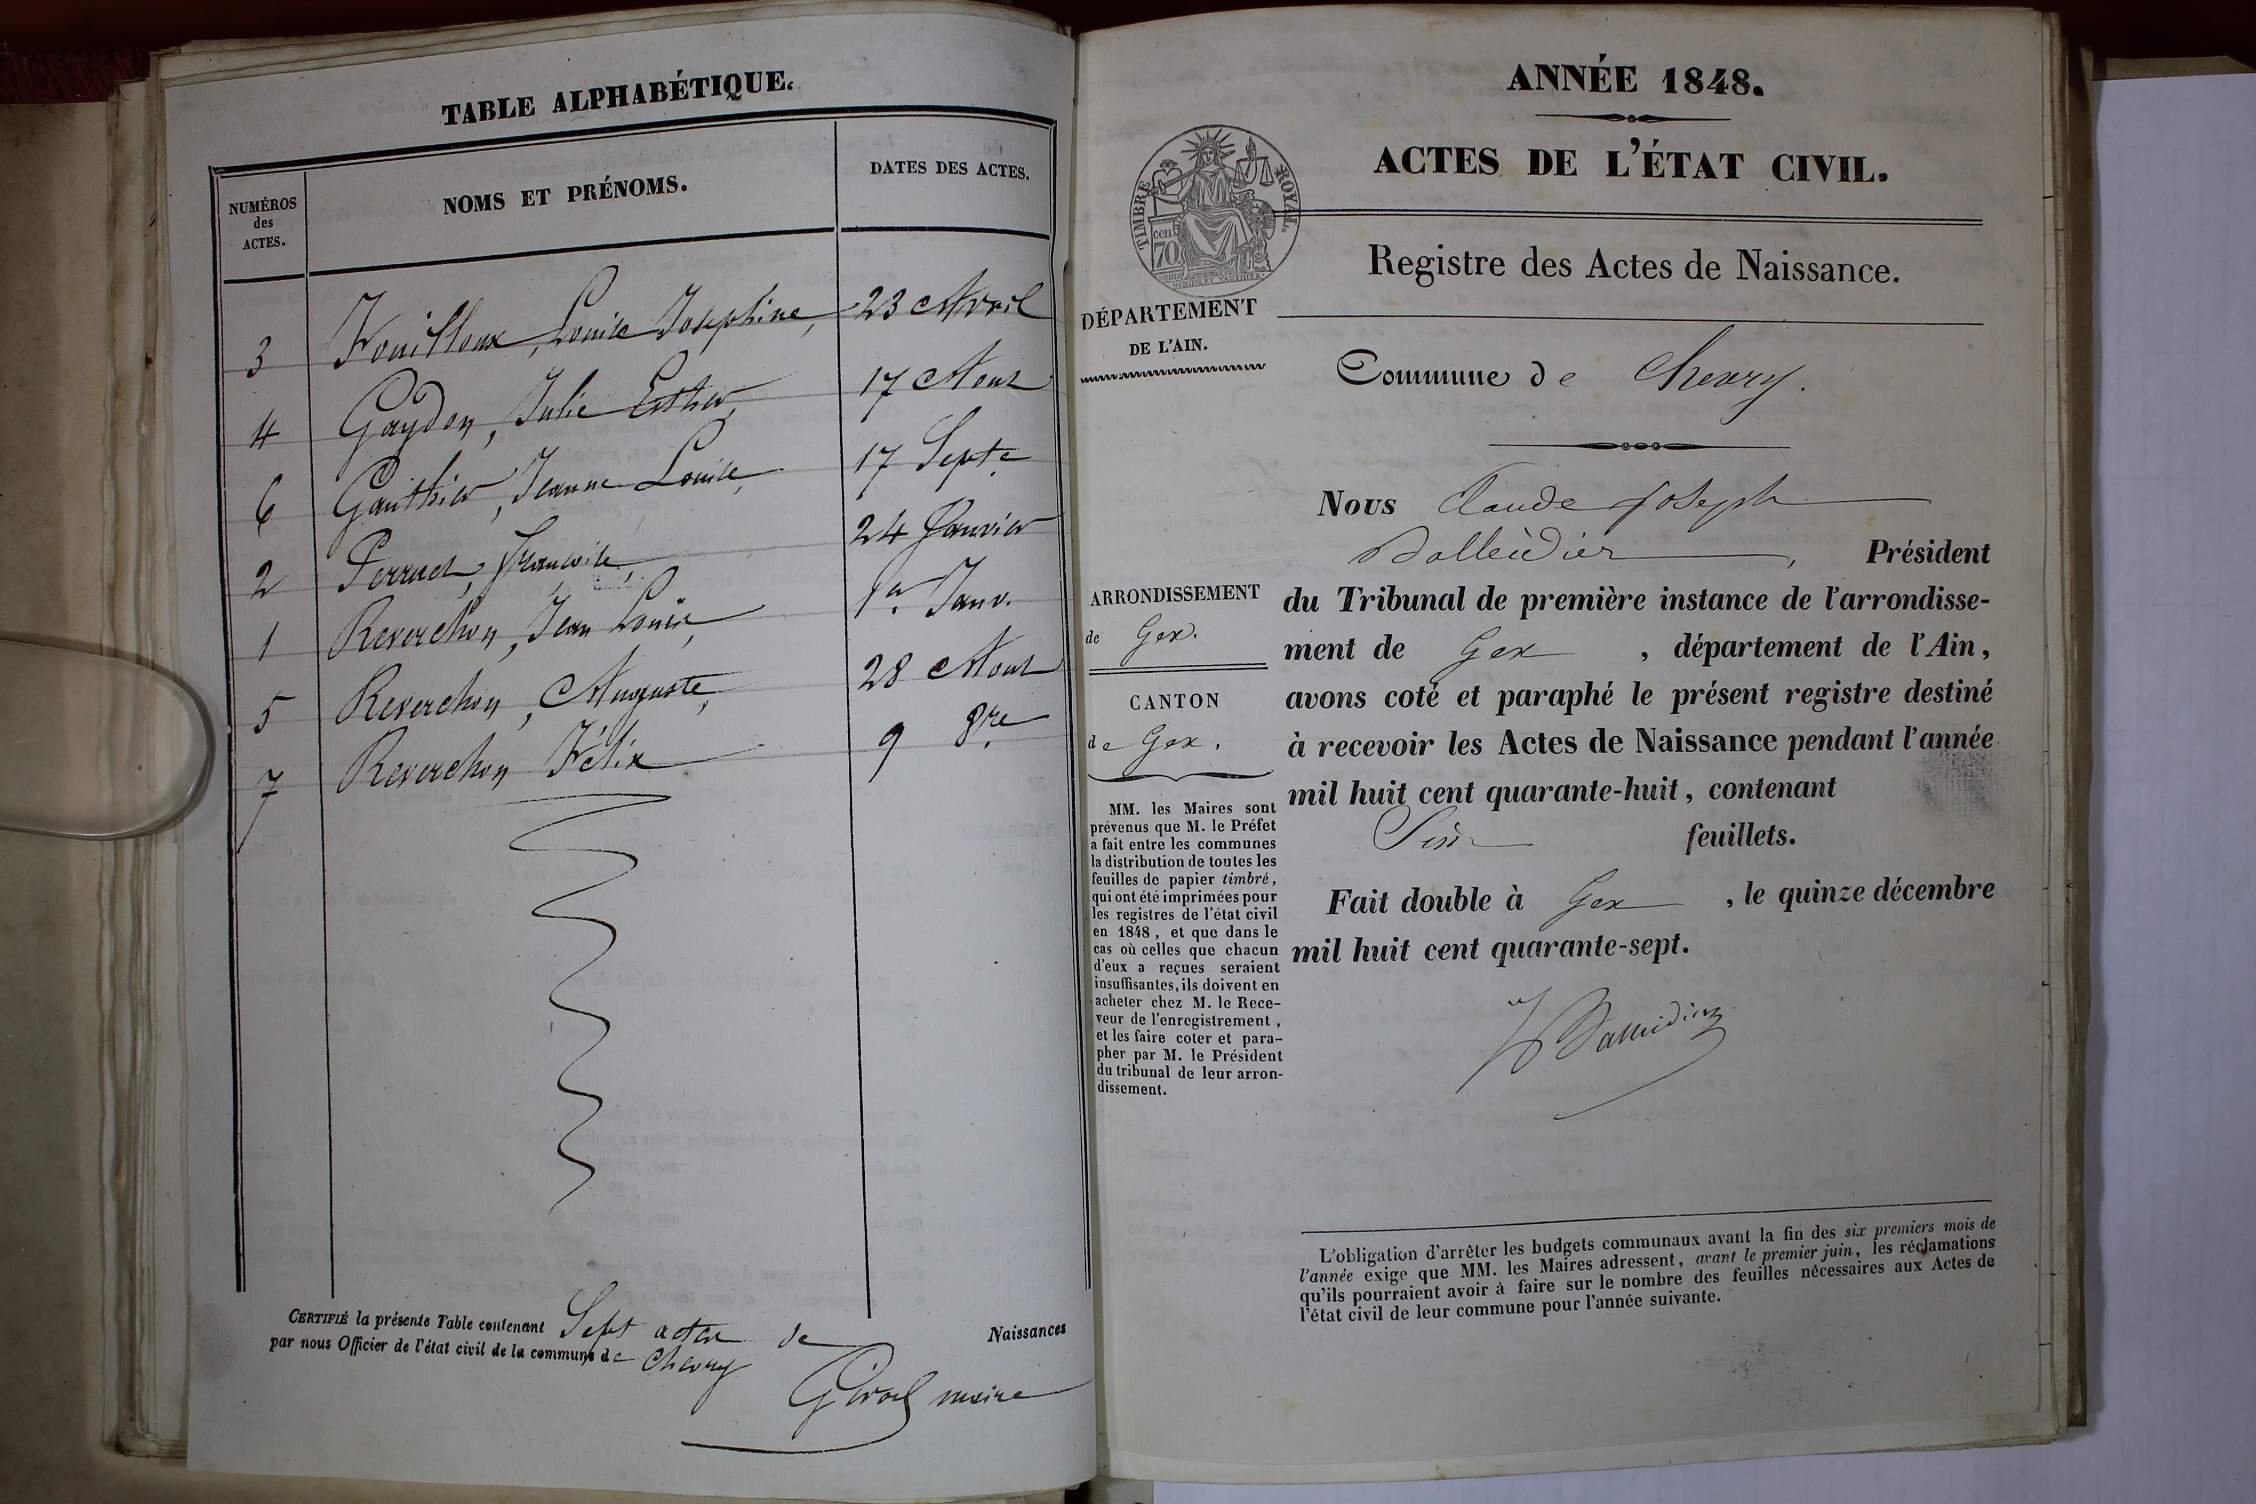 TABLE ALPHABÉTIQUE.
NUMÉROS
des
ACTES.
NOMS ET PRÉNOMS.
DATES DES ACTES.
3 Fouilloux, Louise Josephine, 23 Avril
4 Gaydon, Julie Esther, 17 Aout
6 Gauthier, Jeanne Louise, 17 Septe
2 Perruet, Francoise, 24 Janvier
1 Reverchon, Jean Louis, 1er Janv.
5 Reverchon, Auguste, 28 Aout
7 Reverchon Félix 9 8re
CERTIFIÉ la présente Table contenant Sept actes de Naissances
par nous Officier de l'état civil de la commune de Chevry
maire
ANNÉE 1848.
ACTES DE L'ÉTAT CIVIL.
TIMBRE ROYAL.
cent
70
Registre des Actes de Naissance.
DÉPARTEMENT
DE L'AIN.
Commune de Chevry.
Nous Claude Joseph
Dalleidier, Président
ARRONDISSEMENT
de Gex.
CANTON
de Gex.
du Tribunal de première instance de l'arrondisse-
ment de Gex, département de l'Ain,
avons coté et paraphé le présent registre destiné
à recevoir les Actes de Naissance pendant l'année
mil huit cent quarante-huit, contenant
Six feuillets.
Fait double à Gex, le quinze décembre
mil huit cent quarante-sept.
MM. les Maires sont
prévenus que M. le Préfet
a fait entre les communes
la distribution de toutes les
feuilles de papier timbré,
qui ont été imprimées pour
les registres de l'état civil
en 1848, et que dans le
cas où celles que chacun
d'eux a reçues seraient
insuffisantes, ils doivent en
acheter chez M. le Rece-
veur de l'enregistrement,
et les faire coter et para-
pher par M. le Président
du tribunal de leur arron-
dissement.
L'obligation d'arrêter les budgets communaux avant la fin des six premiers mois de
l'année exige que MM. les Maires adressent, avant le premier juin, les réclamations
qu'ils pourraient avoir à faire sur le nombre des feuilles nécessaires aux Actes de
l'état civil de leur commune pour l'année suivante.